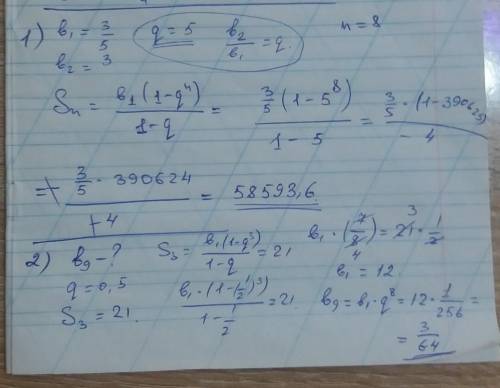 1) b₁ = 3/5 q = 5 b₂/b₁ = q. n = 8
b₂ = 3
Sₙ = b₁(1-qⁿ)/1-q = 3/5(1-5⁸)/1-5 = 3/5·(1-390625)/-4
= + 3/5·390624/+4 = 58593,6.
2) b₉ - ? S₃ = b₁(1-q³)/1-q = 21 b₁·(7/8) = 21·1/2
q = 0,5 b₁·(1-(1/2)³)/1-1/2 = 21 b₁ = 12
S₃ = 21. b₉ = b₁·q⁸ = 12·1/256 =
= 3/64